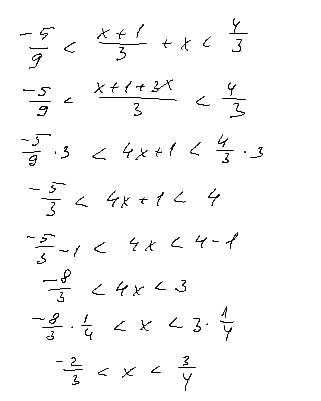 -5/9 < (x+1)/3 + x < 4/3
-5/9 < (x+1+3x)/3 < 4/3
-5/9 · 3 < 4x+1 < 4/3 · 3
-5/3 < 4x+1 < 4
-5/3 -1 < 4x < 4-1
-8/3 < 4x < 3
-8/3 · 1/4 < x < 3 · 1/4
-2/3 < x < 3/4